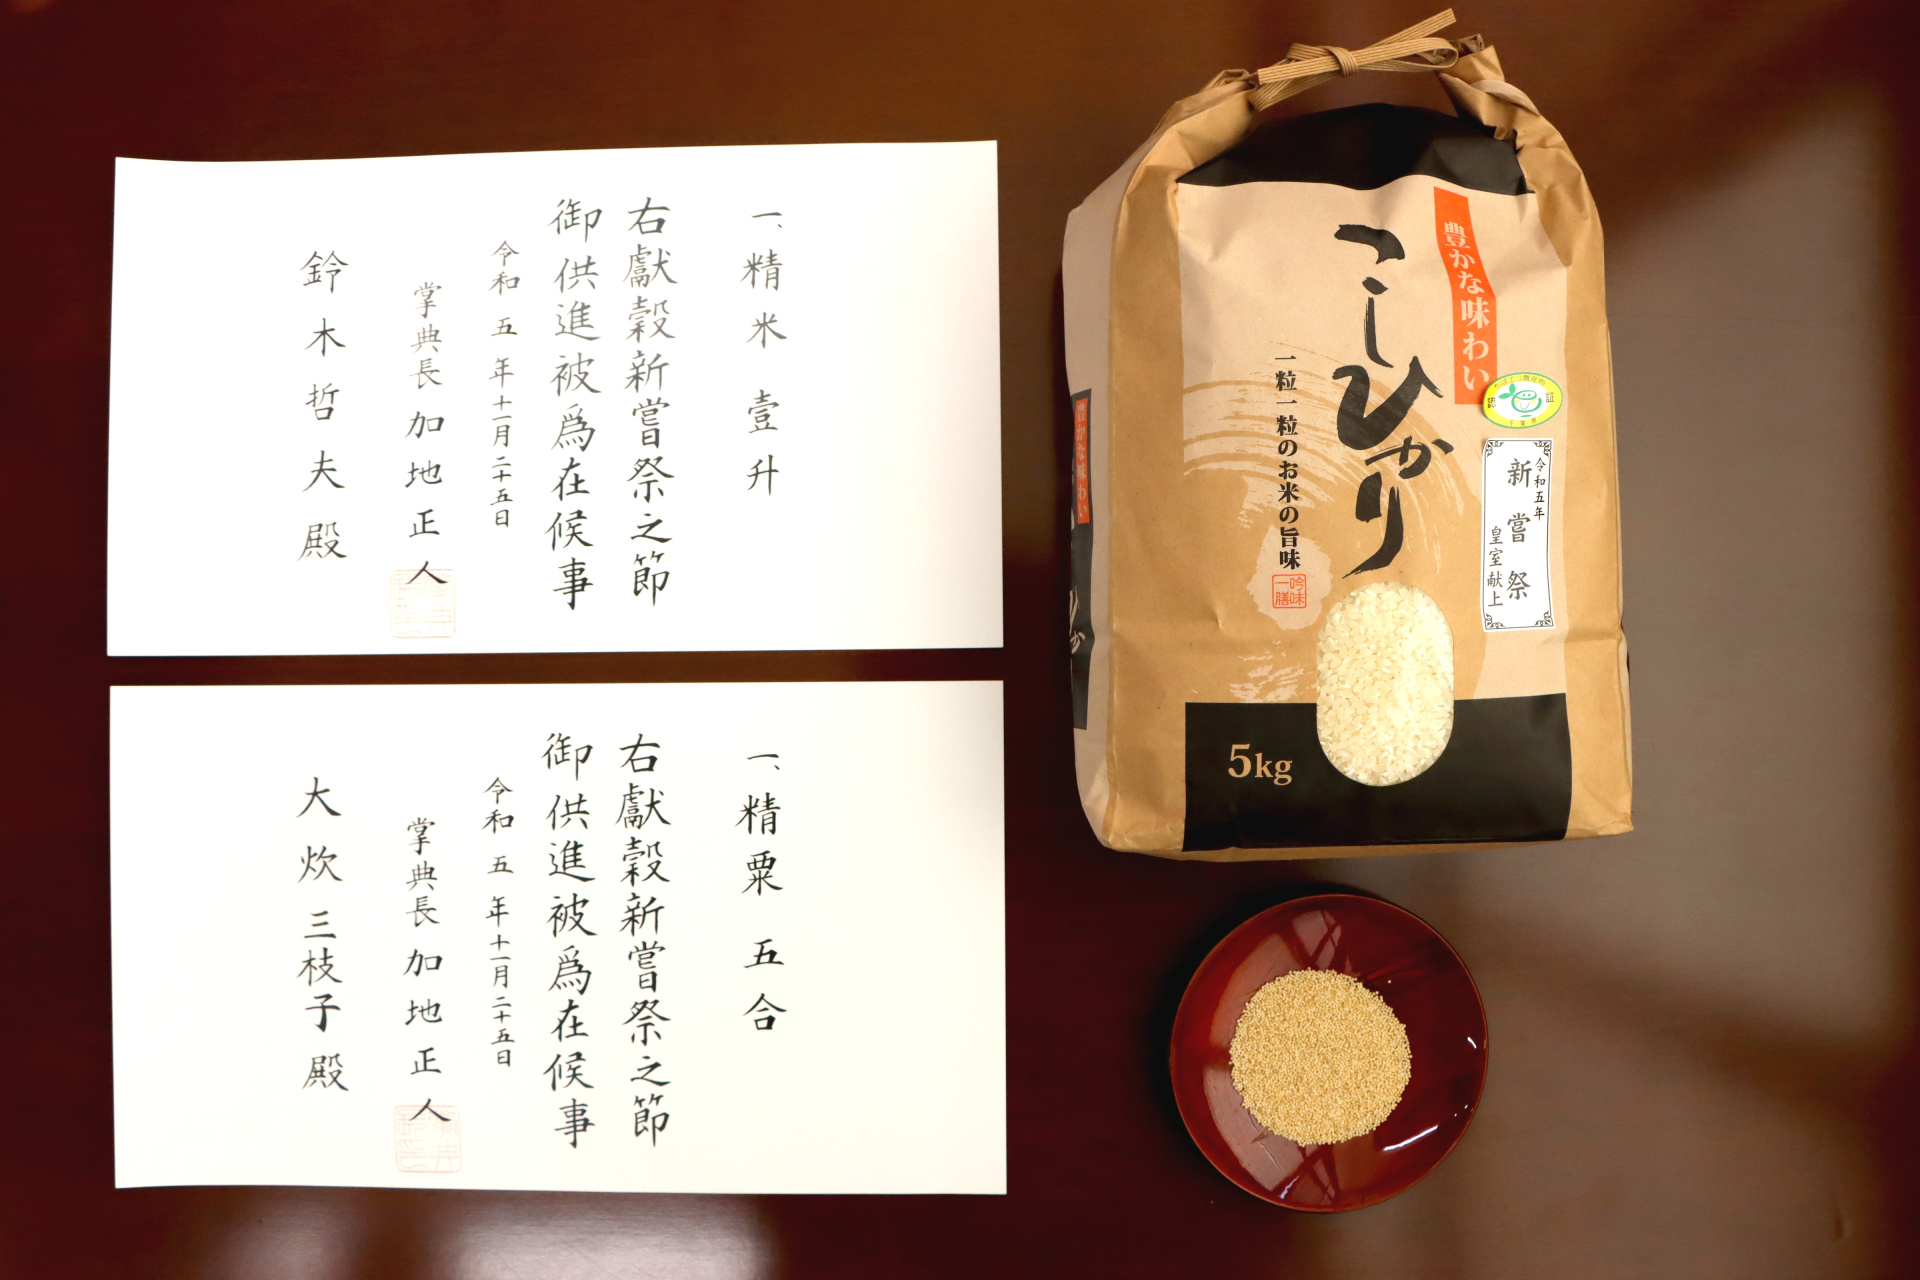 一、精米 壹升
右獻穀新嘗祭之節
御供進被爲在候事
令和五年十一月二十五日
掌典長 加地正人
鈴木哲夫殿
一、精粟 五合
右獻穀新嘗祭之節
御供進被爲在候事
令和五年十一月二十五日
掌典長 加地正人
大炊三枝子殿
豊かな味わい
こしひかり
一粒一粒のお米の旨味
吟味一膳
ちばエコ農産物
認証
千葉県
令和五年
新嘗祭
皇室献上
5kg
豊かな味わい